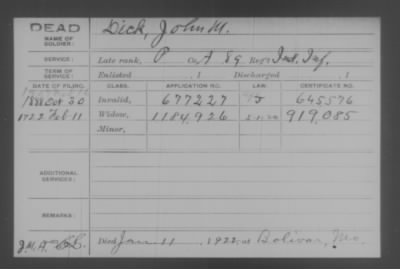 DEAD
NAME OF SOLDIER: Dick, John M.
SERVICE: Late rank, P Co. A 89 Reg't Ind. Inf.
TERM OF SERVICE: Enlisted , 1 Discharged , 1
DATE OF FILING. CLASS. APPLICATION NO. LAW. CERTIFICATE NO.
1888 Oct 30 Invalid, 677227 J 645576
1922 Feb 11 Widow, 1184,926 919,085
Minor,
ADDITIONAL SERVICES:
REMARKS:
Died Jan 11, 1922, at Bolivar, Mo.